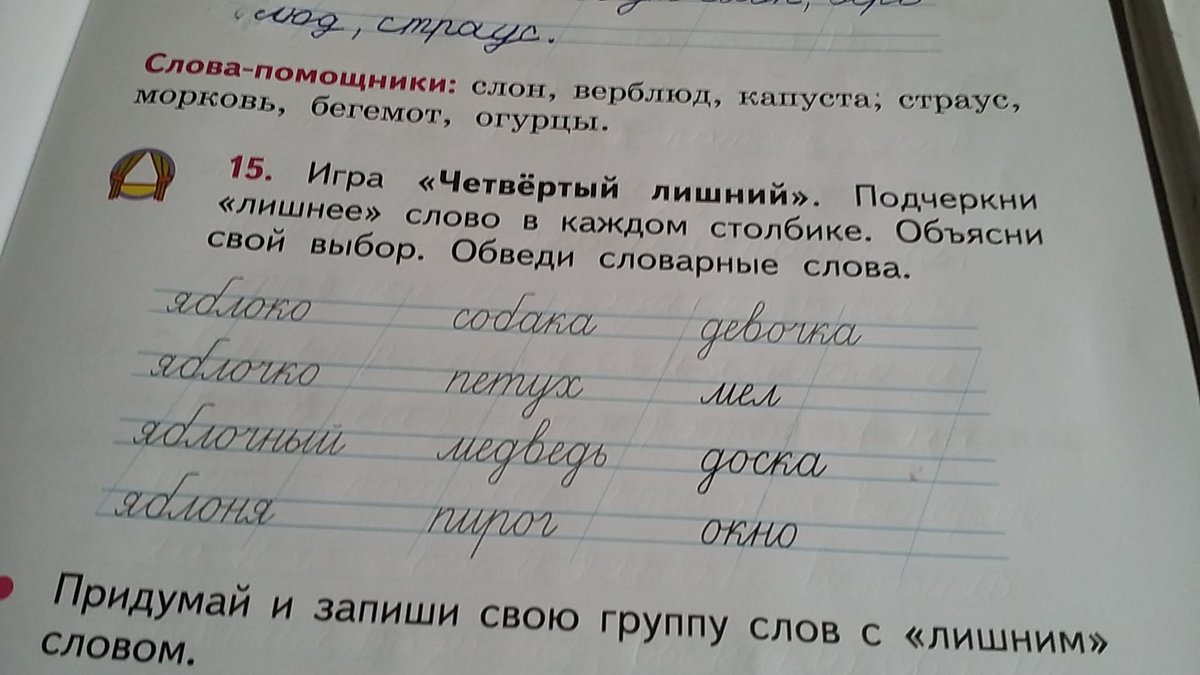 люд, страус.
Слова-помощники: слон, верблюд, капуста; страус,
морковь, бегемот, огурцы.
15. Игра «Четвёртый лишний». Подчеркни
«лишнее» слово в каждом столбике. Объясни
свой выбор. Обведи словарные слова.
яблоко собака девочка
яблочко петух мел
яблочный медведь доска
яблоня пирог окно
Придумай и запиши свою группу слов с «лишним»
словом.